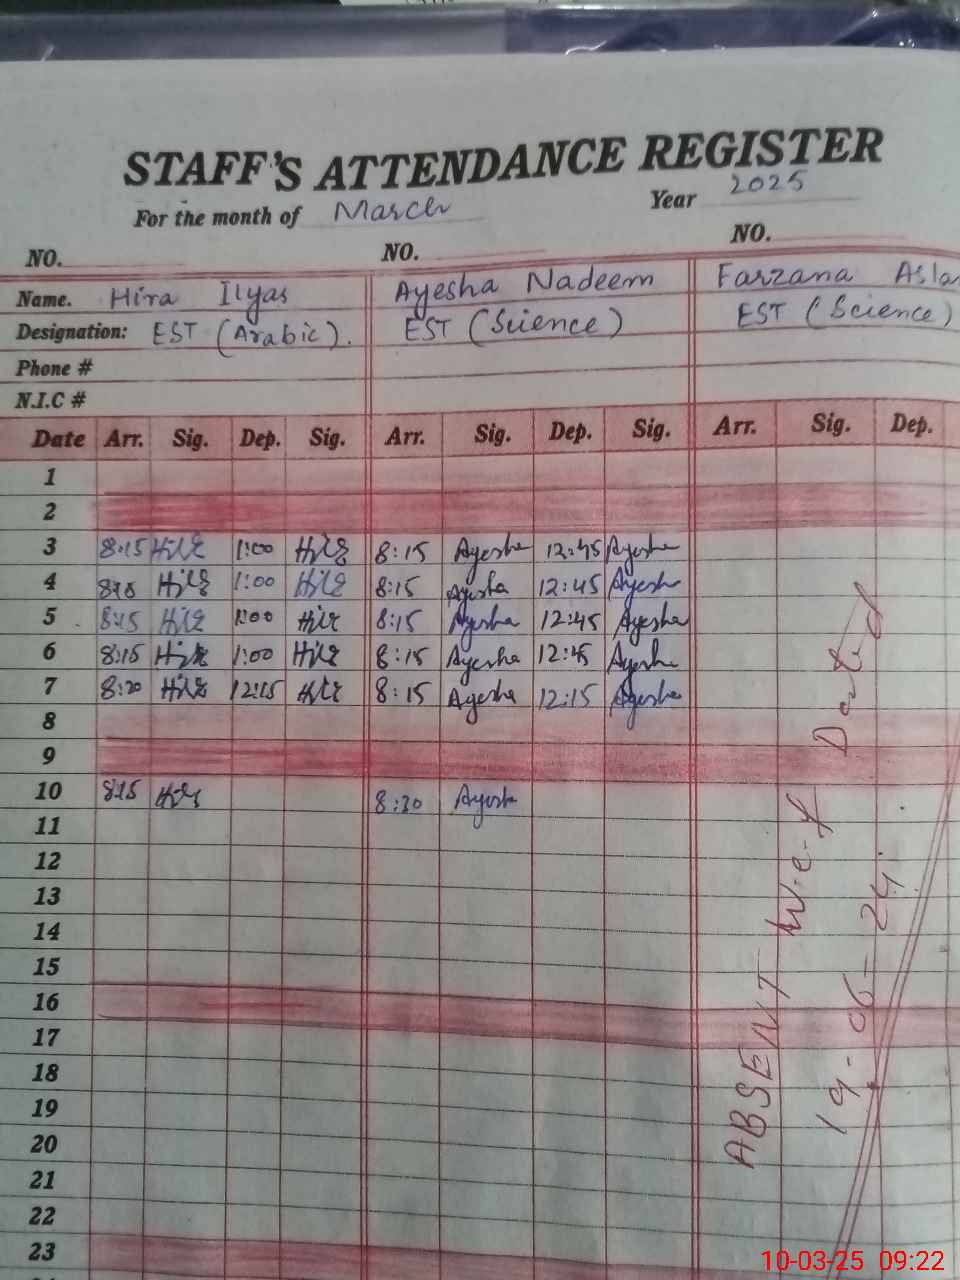 STAFF'S ATTENDANCE REGISTER
For the month of March Year 2025
NO. NO. NO.
Name. Hira Ilyas Ayesha Nadeem Farzana Asla
Designation: EST (Arabic). EST (Science) EST (Science)
Phone #
N.I.C #
Date Arr. Sig. Dep. Sig. Arr. Sig. Dep. Sig. Arr. Sig. Dep.
1
2
3 8:15 1:00 8:15 Ayesha 12:45 Ayesha
4 1:00 8:15 Ayesha 12:45 Ayesha
5 8:15 1:00 8:15 Ayesha 12:45 Ayesha
6 8:15 1:00 8:15 Ayesha 12:45 Ayesha
7 8:20 12:15 8:15 Ayesha 12:15 Ayesha
8
9
10 8:15 Ayesha
11
12
13
14
15
16
17
18
19
20
21
22
23
ABSENT W.e.f Dated
19-06-24.
10-03-25 09:22